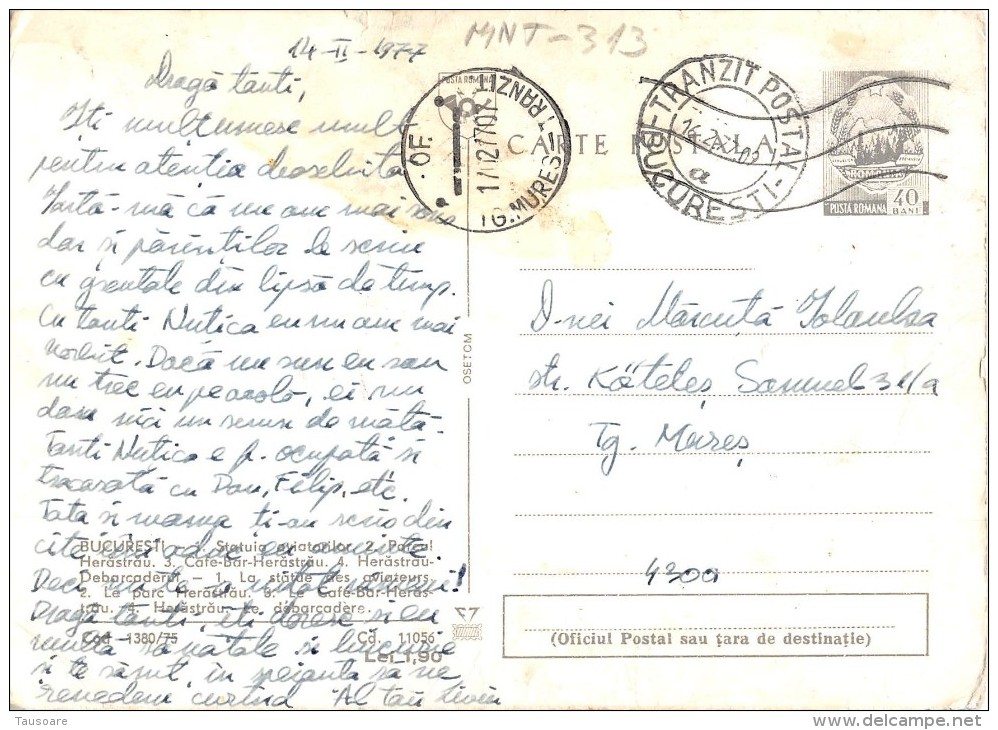 14-II-1977
MNT-313
Dragă tanti,
Îți mulțumesc mult
pentru atenția deosebită
Iartă-mă că nu am mai scris
dar și părinților le scriu
cu greutate din lipsă de timp.
Cu tanti Nutica eu nu am mai
vorbit. Dacă nu sun eu sau
nu trec eu pe acolo, ei nu
dau nici un semn de viată.
Tanti Nutica e f. ocupată și
tracasată cu Dan, Filip, etc.
Tata și mama ti-au scris din
cîte îmi aduc eu aminte.
Deci nu te-a uitat nimeni!
Dragă tanti, îti doresc și eu
multă sănătate și bucurie
și te sărut, în speranta să ne
revedem curînd Al tau Liviu
BUCUREȘTI – 1. Statuia aviatorilor. 2. Parcul
Herăstrău. 3. Café-Bar-Herăstrău. 4. Herăstrău-
Debarcaderul. – 1. La statue des aviateurs.
2. Le parc Herăstrău. 3. Le Café-Bar-Heräs-
trău. 4. Herăstrău. Le débarcadère.
Cod 1380/75 Cd. 11056
Lei 1,90
OSETCM
POSTA ROMANA
OF. 1
17.12.77.07
TRANZIT
TG.MUREȘ
CARTE POȘTALĂ
TRANZIT POSTAL
BUCUREȘTI
a
ROMÂNIA
POSTA ROMANA 40 BANI
D-nei Mărcuță Iolanda
str. Köteleș Samuel 31/a
Tg. Mureș
4300
(Oficiul Postal sau țara de destinație)
Tausoare
delcampe.net